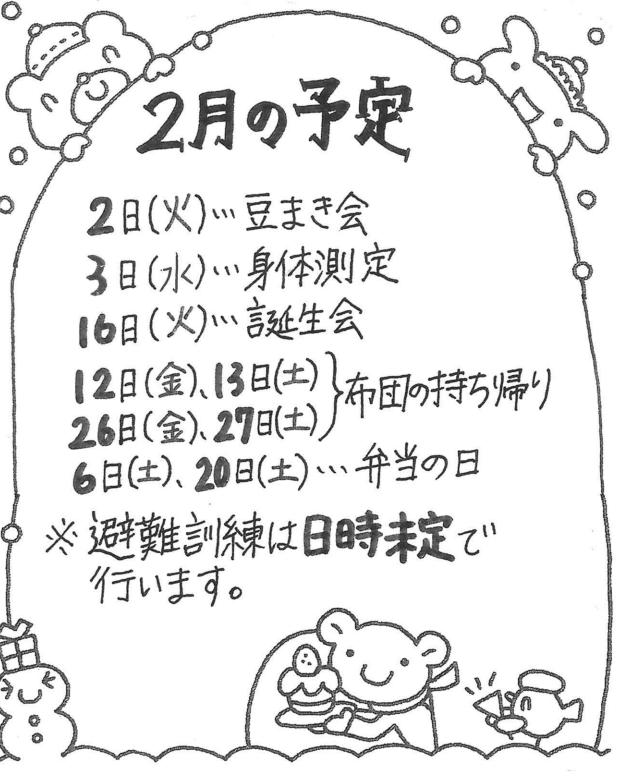 2月の予定
2日(火)…豆まき会
3日(水)…身体測定
16日(火)…誕生会
12日(金)、13日(土)
26日(金)、27日(土)
布団の持ち帰り
6日(土)、20日(土)…弁当の日
※避難訓練は日時未定で
行います。